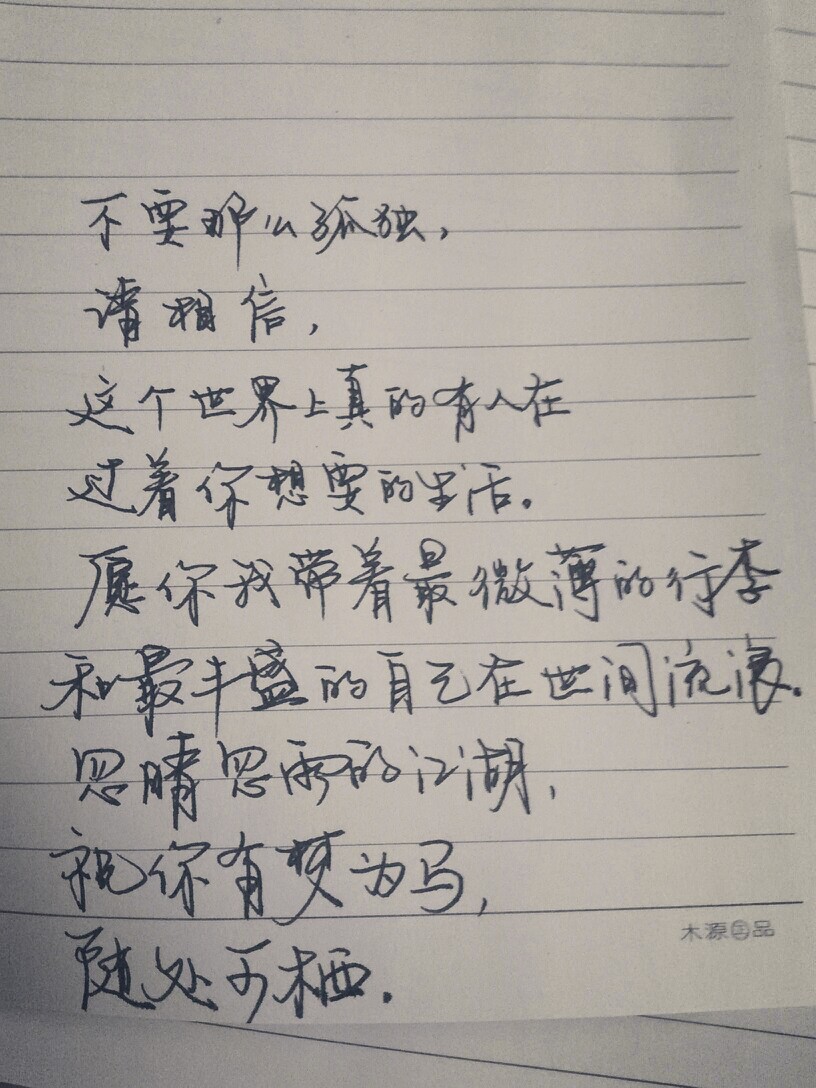 不要那么孤独，
请相信，
这个世界上真的有人在
过着你想要的生活。
愿你我带着最微薄的行李
和最丰盛的自己在世间流浪.
忽晴忽雨的江湖，
祝你有梦为马，
随处可栖.
木源国品